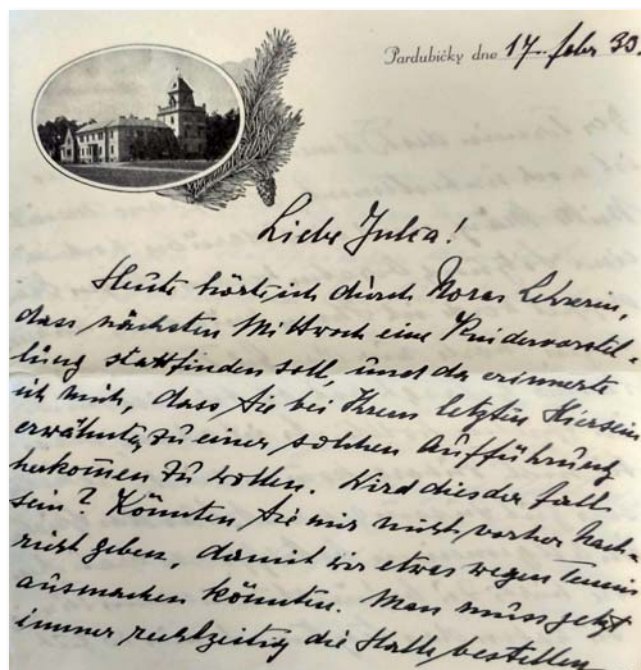 Pardubičky dne 17. febr 33.
Liebe Julca!
Heute hörte ich durch Noras Lehrerin,
dass nächsten Mittwoch eine Kindervorstel-
lung stattfinden soll, und da erinnerte
ich mich, dass Sie bei Ihrem letzten Hiersein
erwähnten, zu einer solchen Aufführung
herkomen zu wollen. Wird dies der Fall
sein? Könnten Sie mir nicht vorher Nach-
richt geben, damit wir etwas wegen Tennis
ausmachen könnten. Man muss jetzt
immer rechtzeitig die Halle bestellen